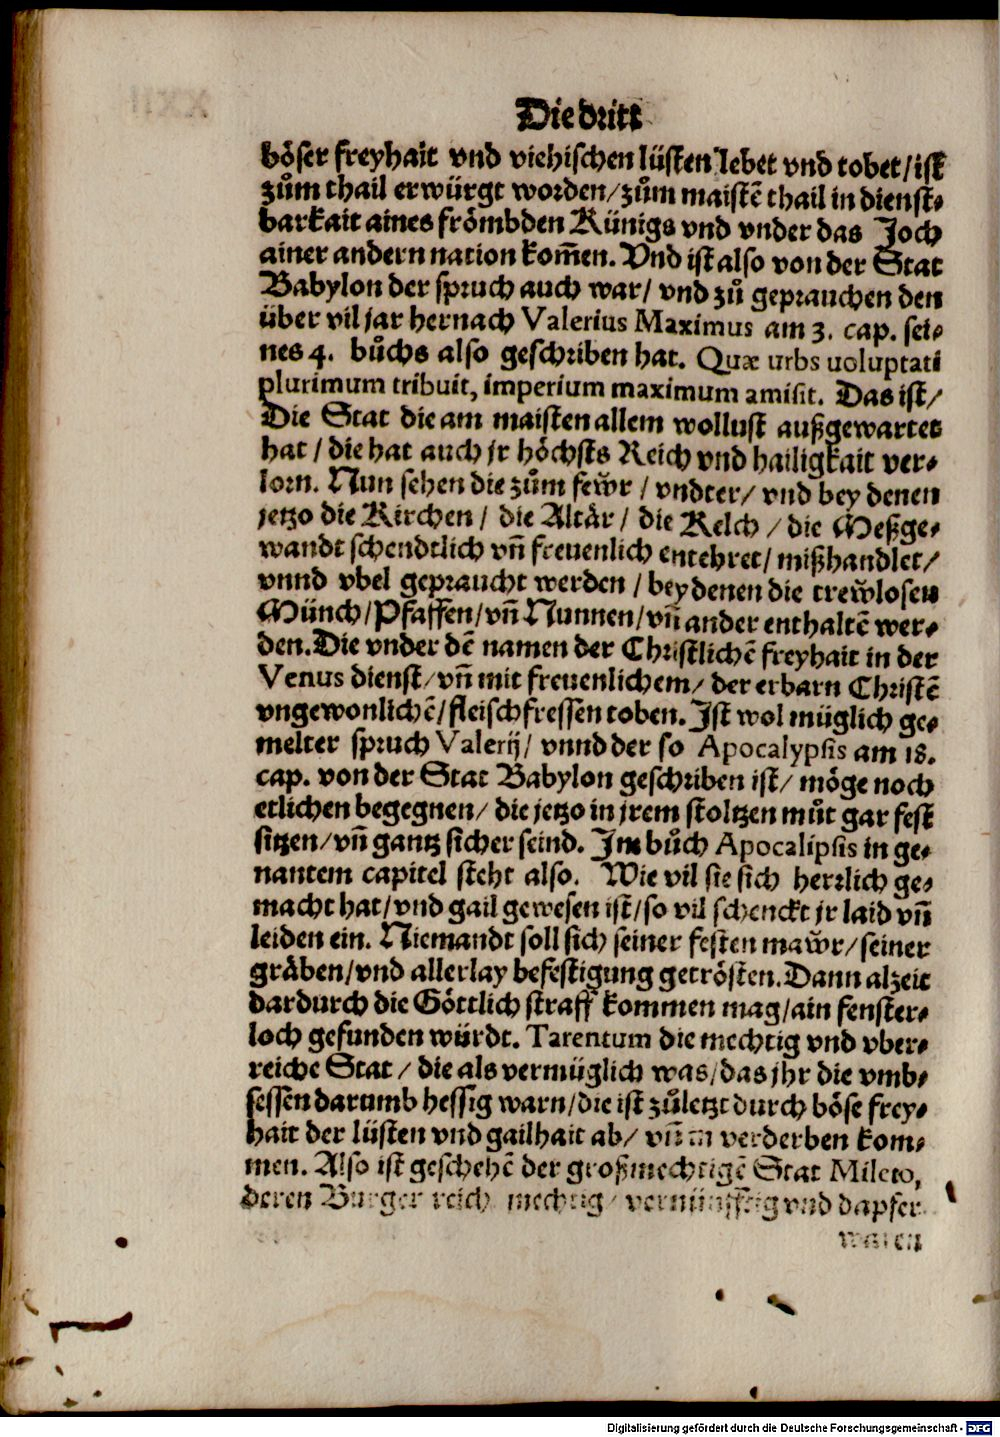 Die dritt
böser freyhait vnd viehischen lüsten lebet vnd tobet/ist
zům thail erwürgt worden/zům maistē thail in dienst⸗
barkait aines frömbden Künigs vnd vnder das Joch
ainer andern nation kom̄en. Vnd ist also von der Stat
Babylon der spruch auch war/ vnd zů geprauchen den
über vil jar hernach Valerius Maximus am 3. cap. sei⸗
nes 4. bůchs also geschriben hat. Quæ urbs uoluptati
plurimum tribuit, imperium maximum amisit. Das ist/
Die Stat die am maisten allem wollust außgewartet
hat / die hat auch jr höchsts Reich vnd hailigkait ver⸗
lorn. Nun sehen die zům fewr / vndter/ vnd bey denen
jetzo die Kirchen / die Altär / die Kelch / die Meßge⸗
wandt schendtlich vn̄ freuenlich entehret/ mißhandlet/
vnnd vbel gepraucht werden / bey denen die trewlosen
Münch/Pfaffen/vn̄ Nunnen/vn̄ ander enthaltē wer⸗
den. Die vnder dē namen der Christlichē freyhait in der
Venus dienst/vn̄ mit freuenlichem/ der erbarn Christē
vngewonlichē/fleischfressen toben. Ist wol müglich ge⸗
melter spruch Valerij/ vnnd der so Apocalypsis am 18.
cap. von der Stat Babylon geschriben ist/ möge noch
etlichen begegnen/ die jetzo in jrem stoltzen můt gar fest
sitzen/vn̄ gantz sicher seind. Im bůch Apocalipsis in ge⸗
nantem capitel steht also. Wie vil sie sich herrlich ge⸗
macht hat/vnd gail gewesen ist/so vil schenckt jr laid vn̄
leiden ein. Niemandt soll sich seiner festen mawr/seiner
gräben/vnd allerlay befestigung getrösten. Dann alzeit
dardurch die Göttlich straff kommen mag/ain fenster⸗
loch gefunden würdt. Tarentum die mechtig vnd vber⸗
reiche Stat / die als vermüglich was/das jhr die vmb⸗
sessen darumb hessig warn/die ist zůletzt durch böse frey⸗
hait der lüsten vnd gailhait ab/ vn̄ in verderben kom⸗
men. Also ist geschehē der großmechtigē Stat Mileto,
deren Burger reich mechtig/ vernünfftig vnd dapfer
waren
Digitalisierung gefördert durch die Deutsche Forschungsgemeinschaft - DFG